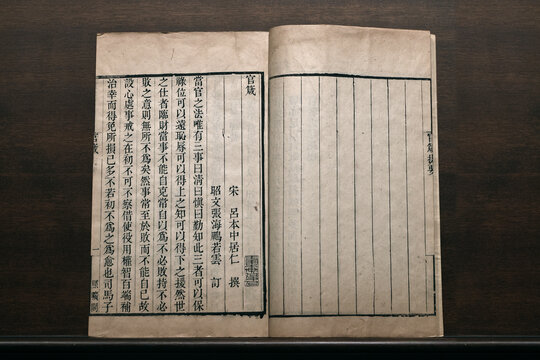 官箴
宋　呂本中居仁　撰
昭文張海鵬若雲　訂
當官之法唯有三事曰淸曰愼曰勤知此三者可以保
祿位可以遠恥辱可以得上之知可以得下之援然世
之仕者臨財當事不能自克常自以爲不必敗持不必
敗之意則無所不爲矣然事常至於敗而不能自已故
設心處事戒之在初不可不察借使役用權智百端補
治幸而得免所損已多不若初不爲之爲愈也司馬子
官箴
一
官箴提要